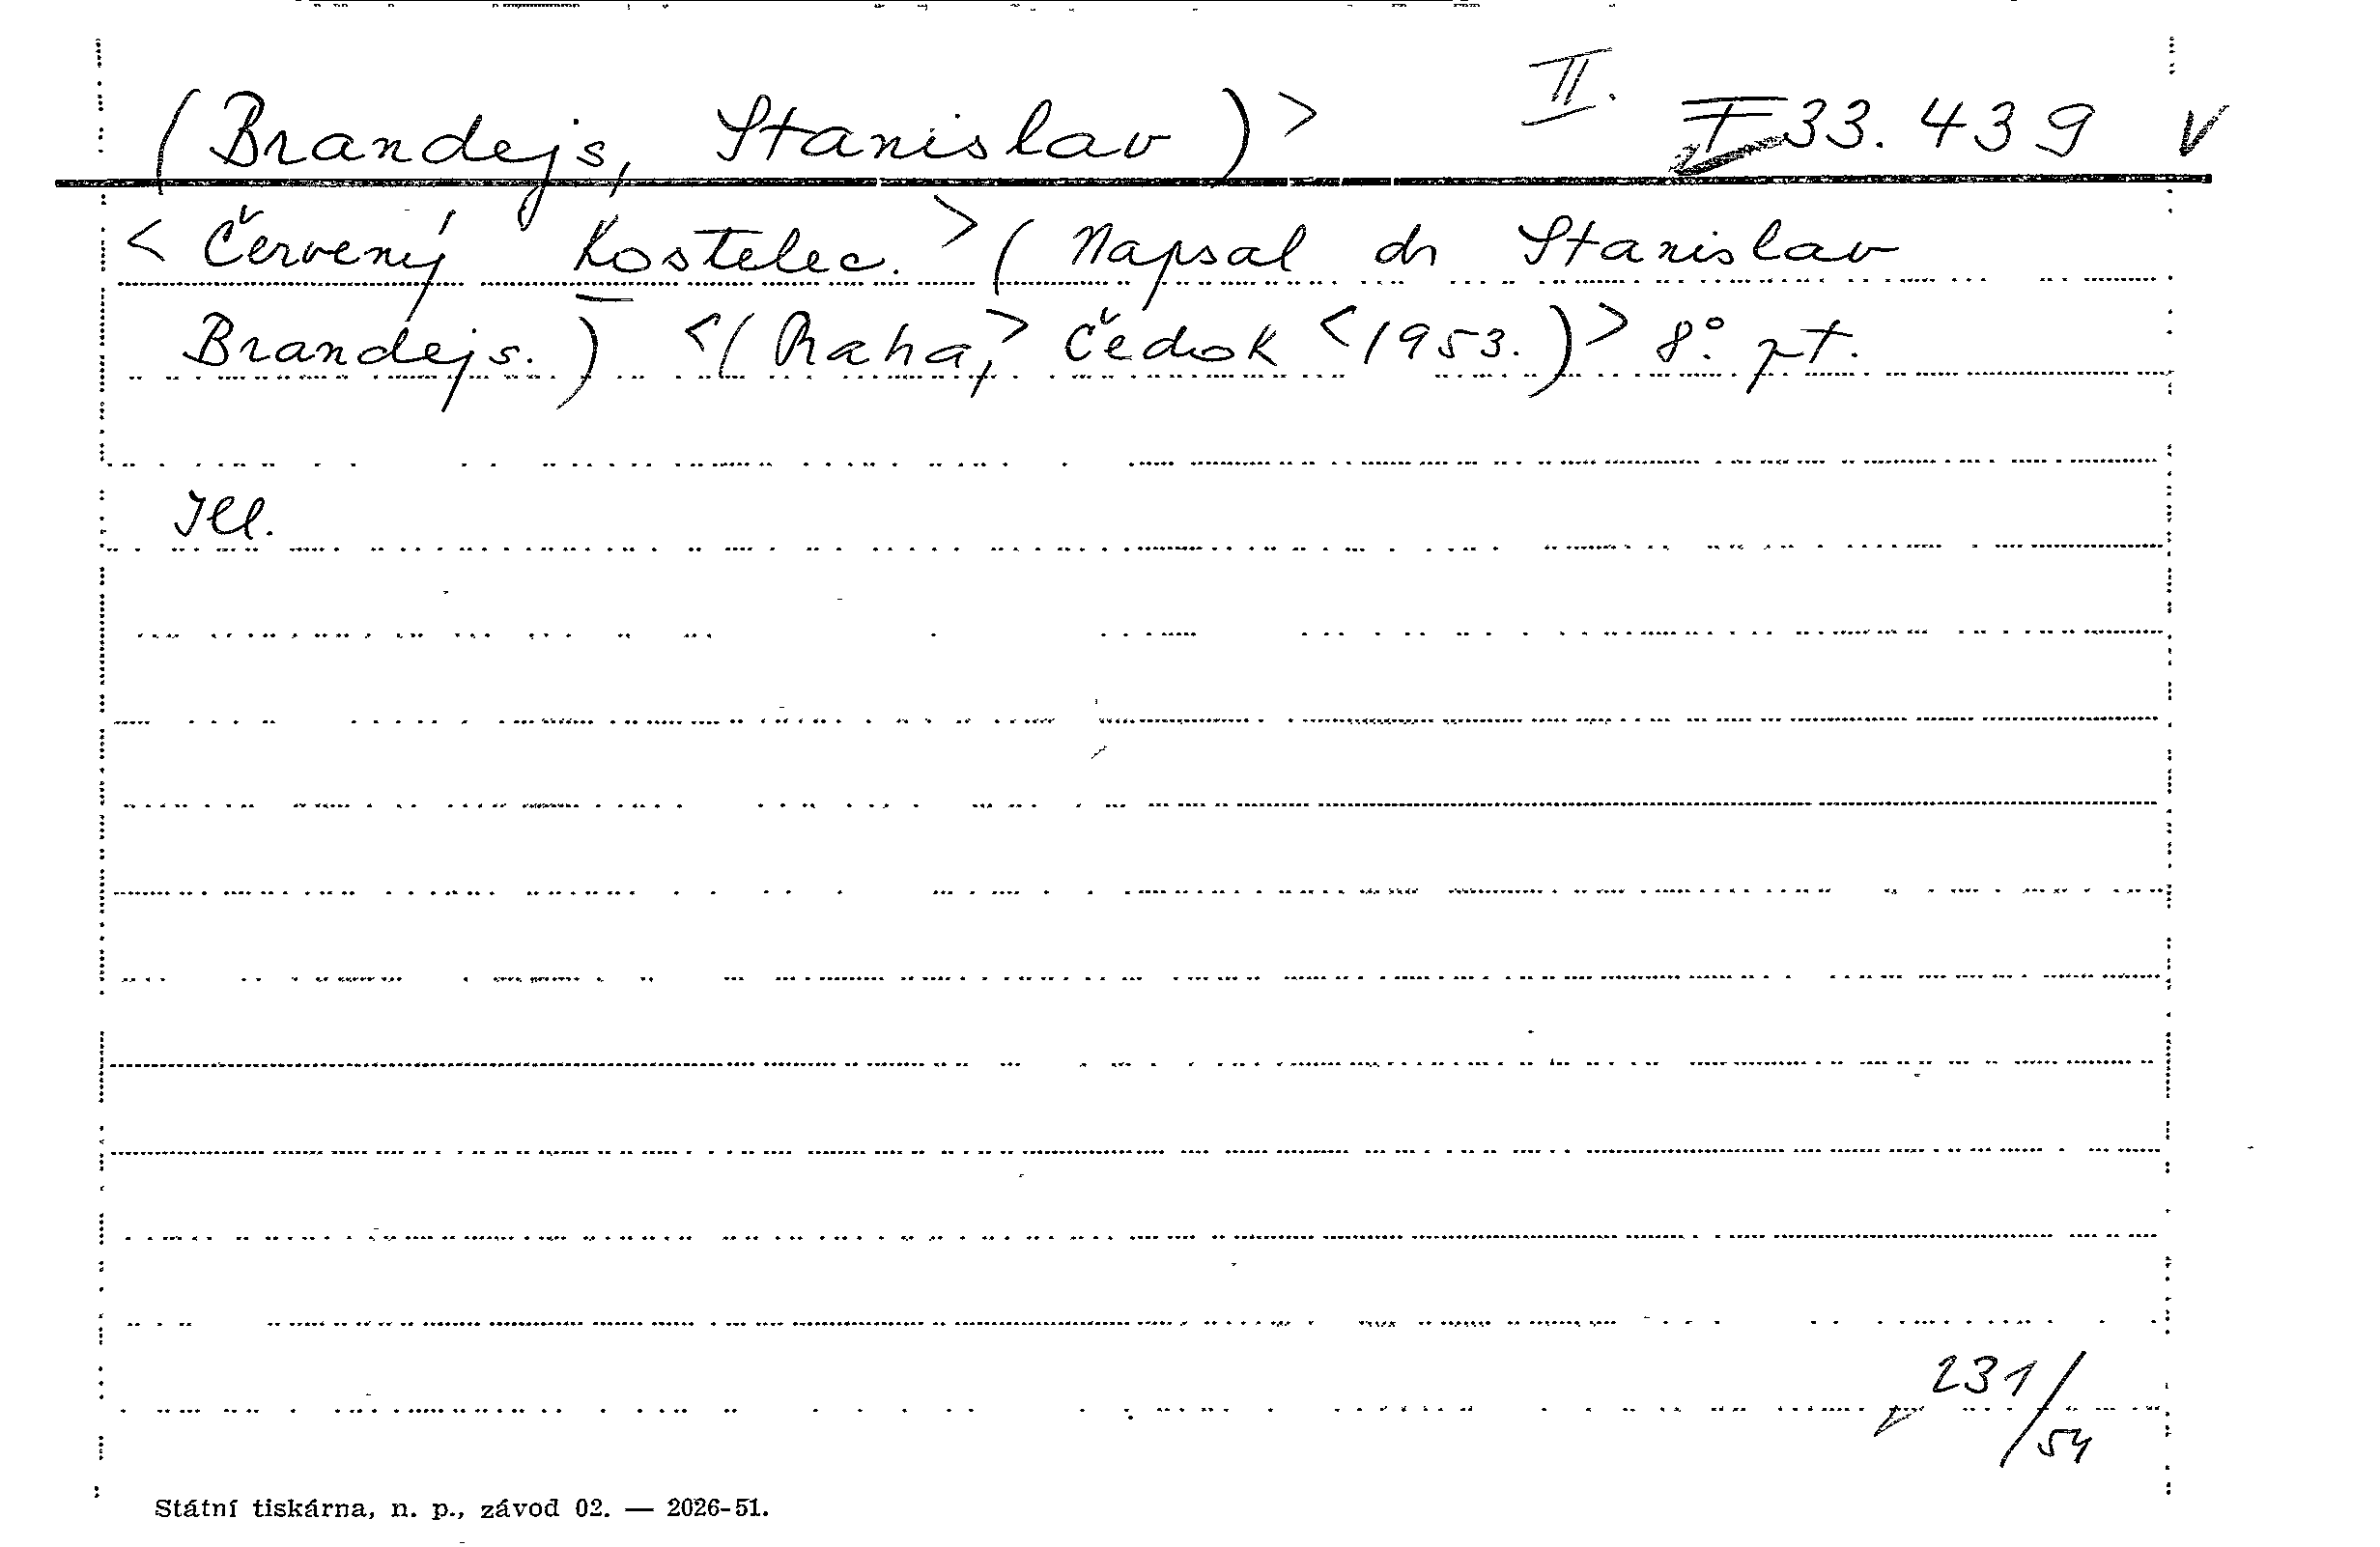 (Brandejs, Stanislav)> II. I 33.439 V
< Červený Kostelec.> (Napsal dr Stanislav
Brandejs.) <(Praha,> Čedok <1953.)> 8°. pt.
Ill.
231/54
Státní tiskárna, n. p., závod 02. — 2026-51.